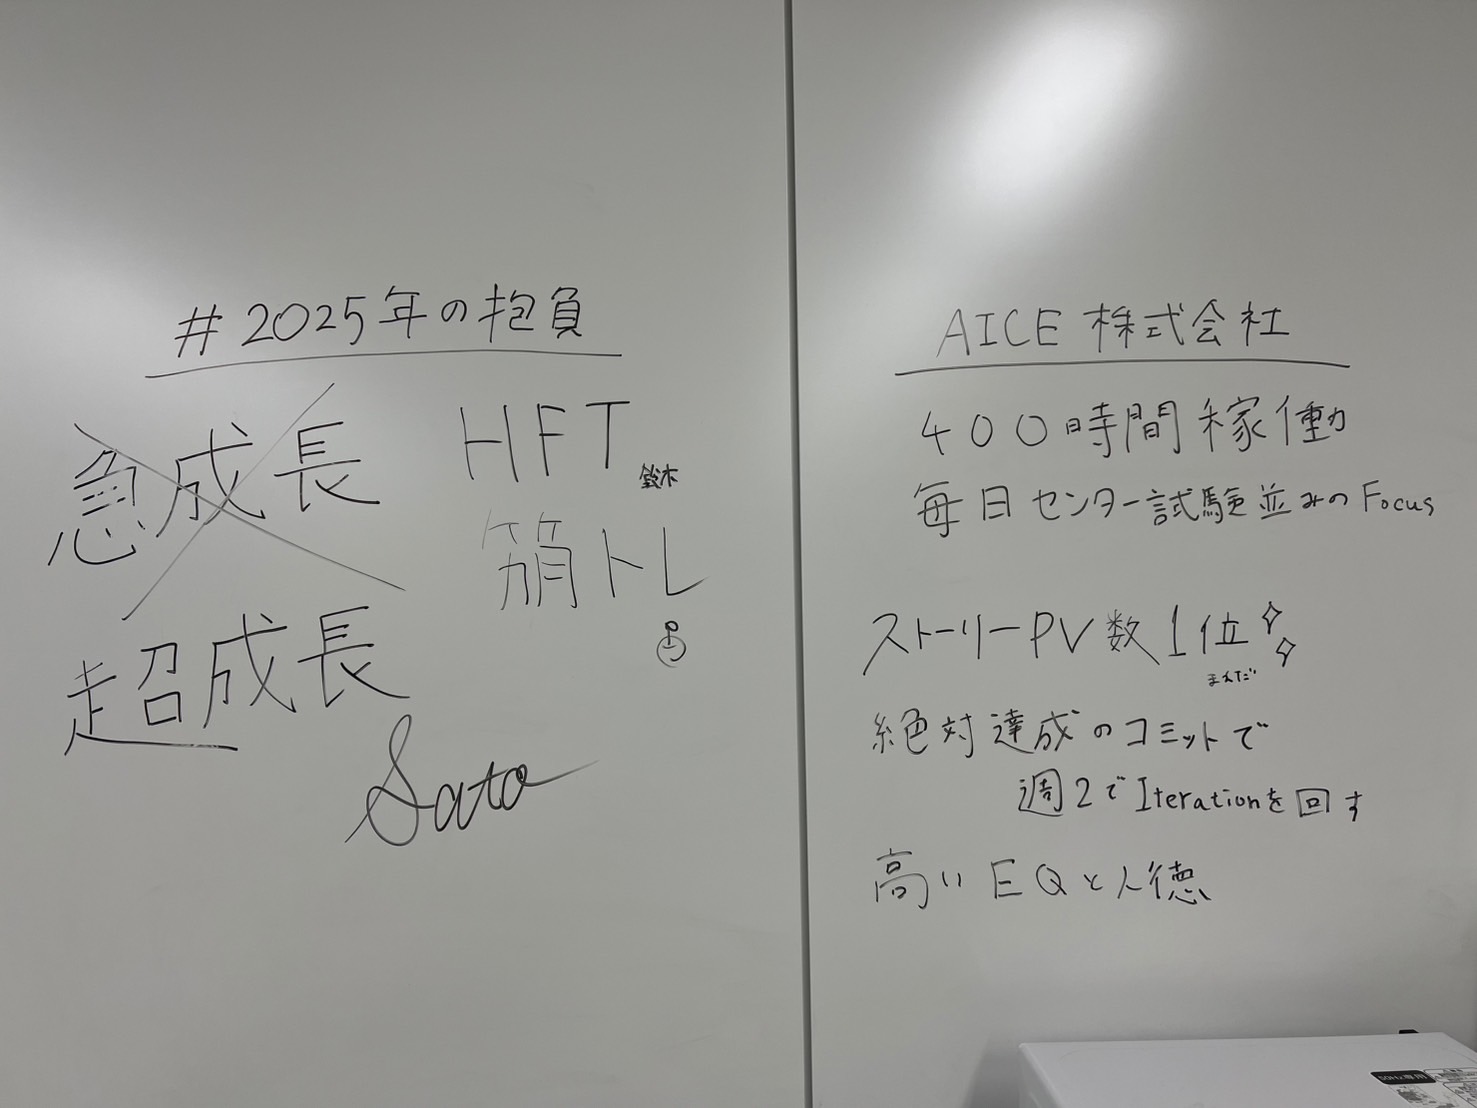 #2025年の抱負
急成長
HFT
鈴木
筋トレ
超成長
Sato
AICE 株式会社
400時間稼働
毎日センター試験並みのFocus
ストーリーPV数1位
まえだ
絶対達成のコミットで
週2でIterationを回す
高いEQと人徳